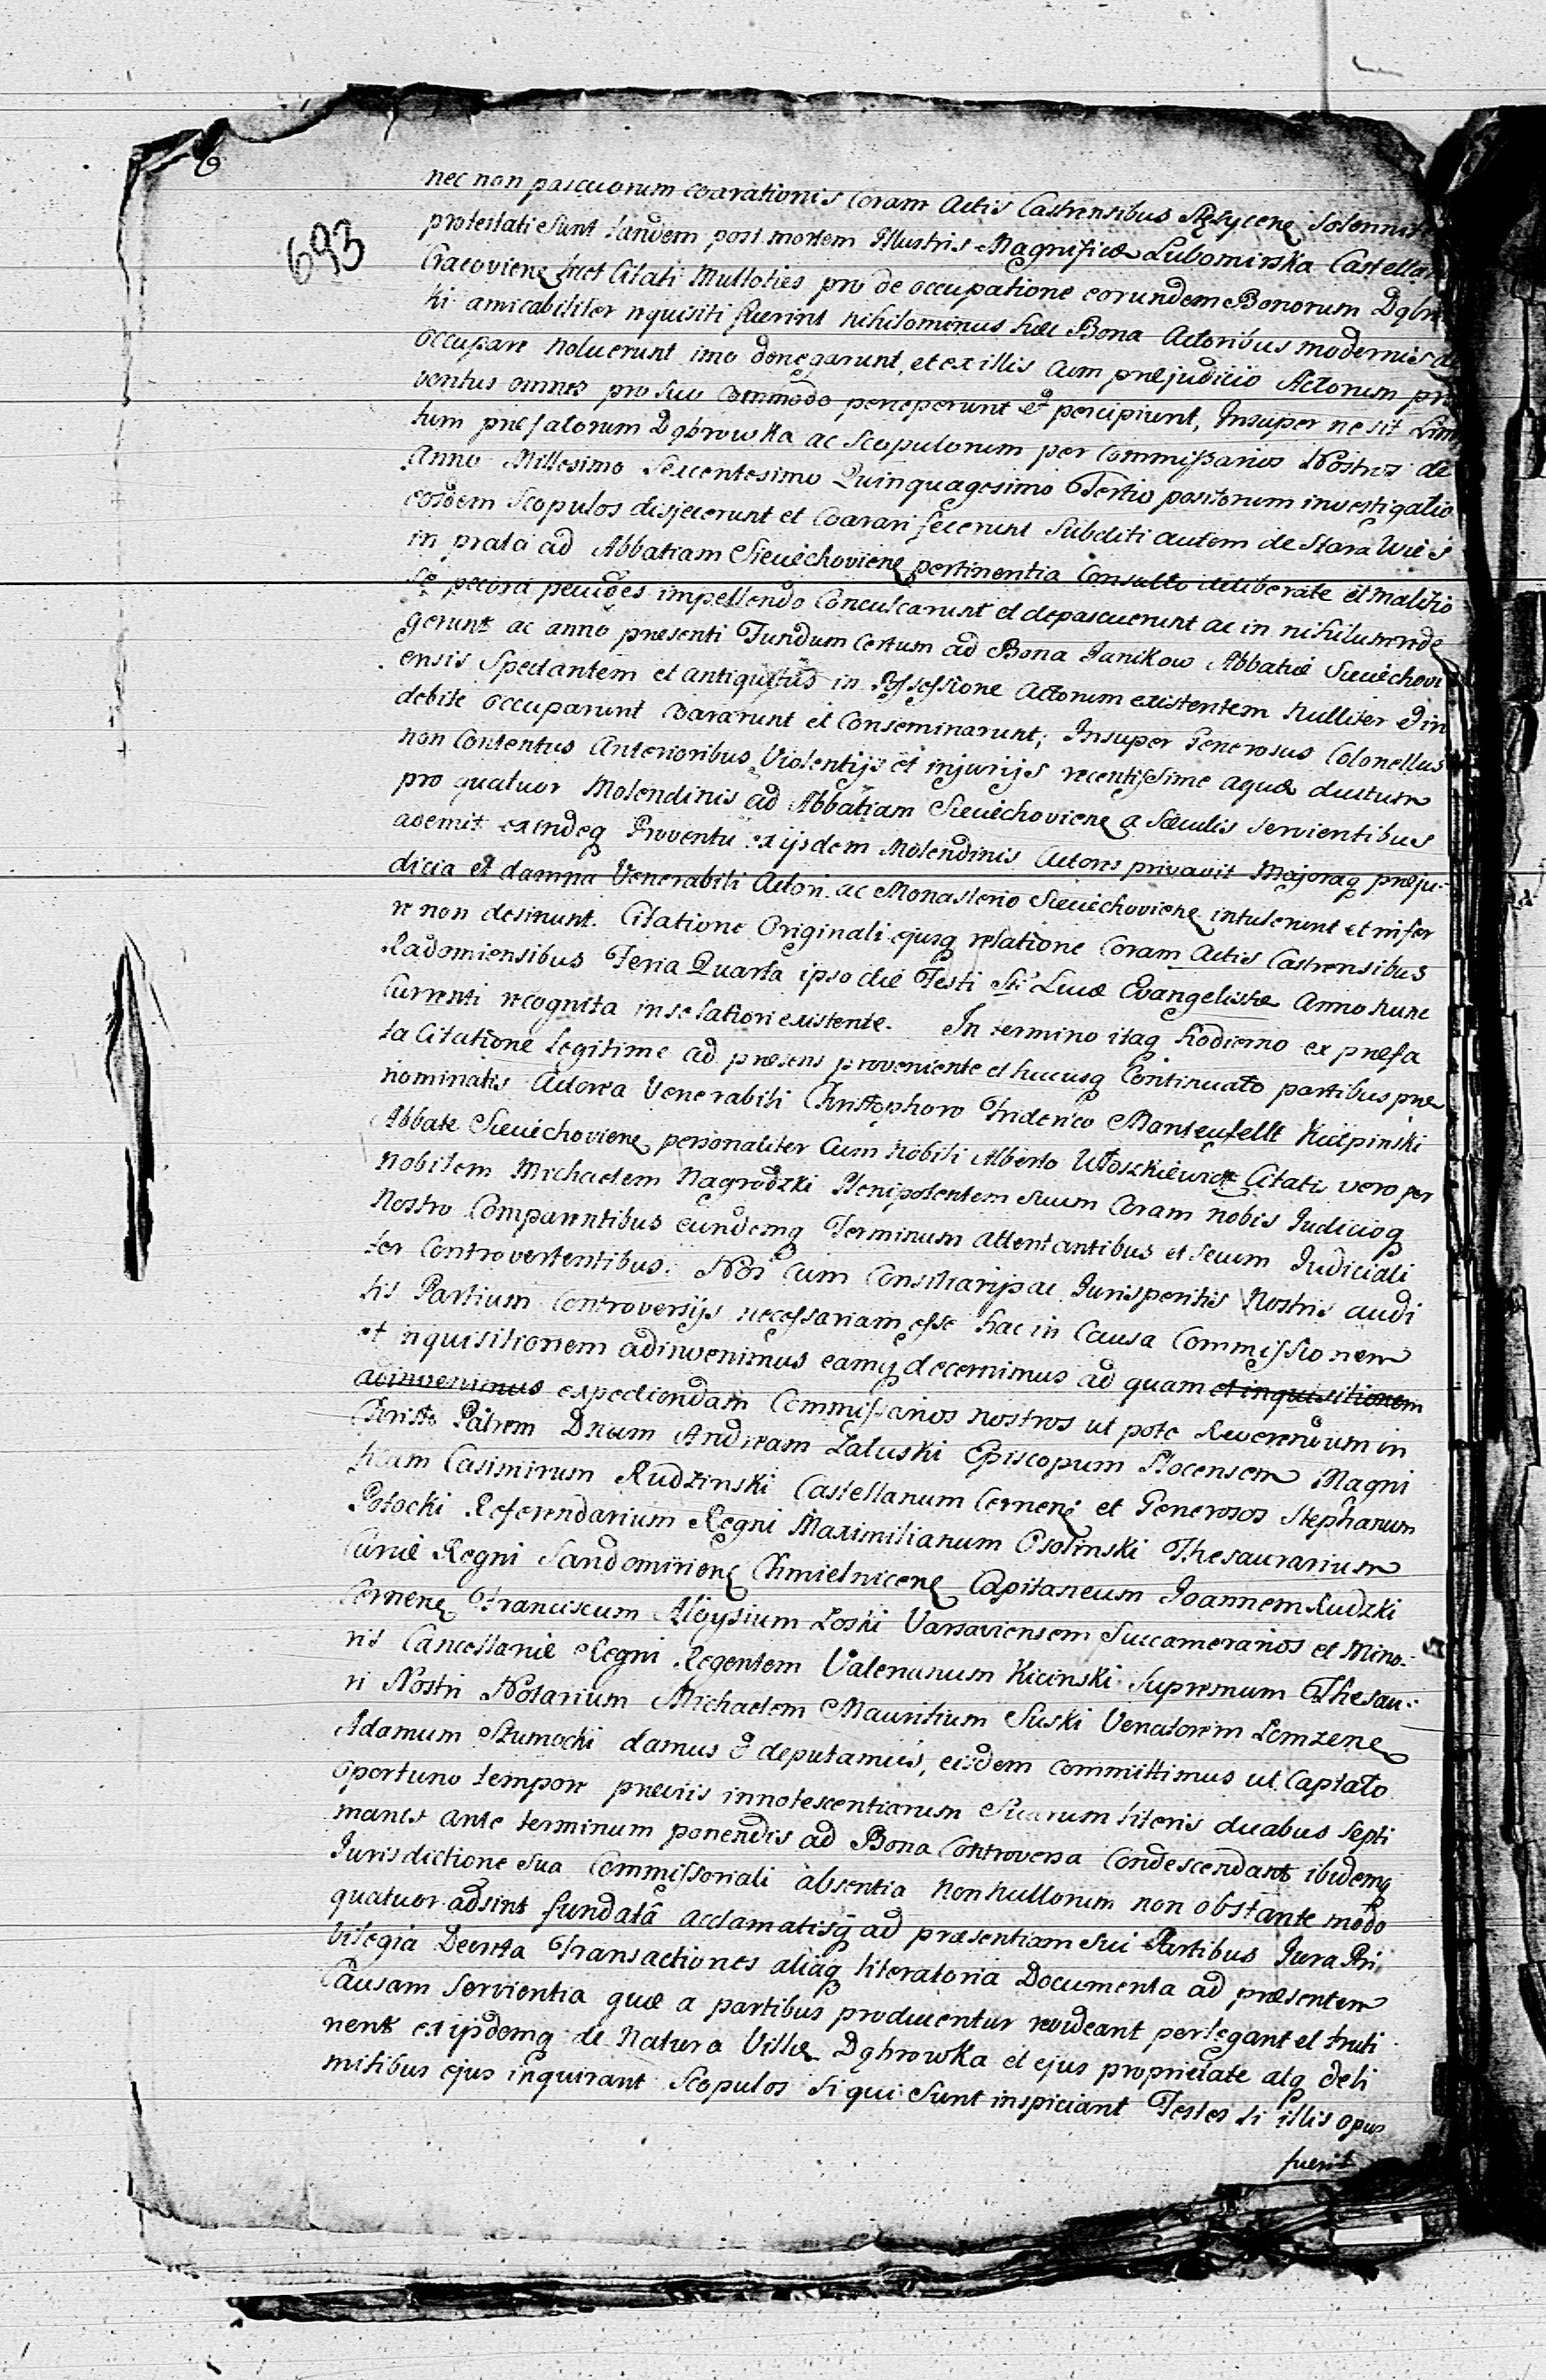 693
nec non pascuorum coarationis Coram Actis Castrensibus Stęzycens Solennit
protestati sunt tandem post mortem Illustris Magnificæ Lubomirska Castellan
Cracoviens licet Citati Multoties pro de occupatione eorundem Bonorum Dąbro
ki amicabiliter requisiti fuerint nihilominus hæc Bona Actoribus modernis d
occupare noluerunt imo denegarunt, et ex illis cum præjudicio Actorum pro
ventus omnes pro suo commodo perceperunt et percipiunt, Insuper ne sit Limi
tum præfatorum Dąbrowka ac Scopulorum per Commissarios Nostros de
Anno Millesimo Sexcentesimo Quinquagesimo Tertio positorum investigatio
eosdem Scopulos disjecerunt et Coarari fecerunt Subditi autem de Stara Wies
in prata ad Abbatiam Sieciechoviens pertinentia Consulto deliberate et malitio
se pecora pecudes impellendo Conculcarunt et depascuerunt ac in nihilum rede
gerunt ac anno præsenti Fundum Certum ad Bona Janikow Abbatiæ Sieciechovi
ensis Spectantem et antiquitus in Possessione Actorum existentem nulliter et in
debite occuparunt coararunt et Conseminarunt; Insuper Generosus Colonellus
non Contentus Anterioribus Violentijs et injurijs recentissime aquæ ductum
pro quatuor Molendinis ad Abbatiam Sieciechoviens a Sæculis servientibus
ademit exindeq Proventu ex ijsdem Molendinis Actores privavit Majoraq præju-
dicia et damna Venerabili Actori ac Monasterio Sieciechoviens intulerunt et infer
re non desinunt. Citatione Originali ejusq relatione Coram Actis Castrensibus
Radomiensibus Feria Quarta ipso die Festi Sti Lucæ Evangelistæ Anno nunc
Currenti recognita in se latiori existente. In termino itaq hodierno ex præfa
ta Citatione legitime ad præsens proveniente et hucusq Continuato partibus præ
nominatis Actorea Venerabili Christophoro Friderico Manteufellt Kiełpinski
Abbate Sieciechoviens personaliter Cum Nobili Alberto Włoszkiewicz Citatis vero per
Nobilem Michaelem Nagrodzki Plenipotentem Suum Coram nobis Judicioq
Nostro Comparentibus eundemq Terminum attentantibus et secum Judiciali
ter Controvertentibus. Nos Cum Consiliarijs ac Jurisperitis Nostris audi
tis Partium Controversijs necessariam esse hac in Causa Commissionem
et inquisitionem adinvenimus eamq decernimus ad quam et inquisitionem
adinvenimus expediendam Commissarios nostros ut pote Reverendum in
Christo Patrem Dnum Andream Zaluski Episcopum Plocensem Magni
ficum Casimirum Rudzinski Castellanum Cernens et Generosos Stephanum
Potocki Referendarium Regni Maximilianum Osolinski Thesaurarium
Curiæ Regni Sandomiriens Chmielnicens Capitaneum Joannem Rudzki
Cernens Franciscum Aloysium Łoski Varsaviensem Succamerarios et Mino-
ris Cancellariæ Regni Regentem Valerianum Kicinski Supremum Thesau-
ri Nostri Notarium Michaelem Mauritium Suski Venatorem Lomzens
Adamum Szumocki damus et deputamus, eisdem committimus ut Captato
oportuno tempore præviis innotescentiarum Suarum literis duabus Septi
manis ante terminum ponendis ad Bona Controversa Condescendant ibidemq
Jurisdictione sua Commissoriali absentia nonnullorum non obstante modo
quatuor adsint fundatâ acclamatisq ad præsentiam sui Partibus Jura Pri
vilegia Decreta Transactiones aliaq literatoria Documenta ad præsentem
Causam Servientia quæ a partibus producentur revideant perlegant et truti
nent ex ijsdemq de Natura Villæ Dąbrowka et ejus proprietate atq deli
mitibus ejus inquirant Scopulos si qui Sunt inspiciant Testes si illis opus
fuerit